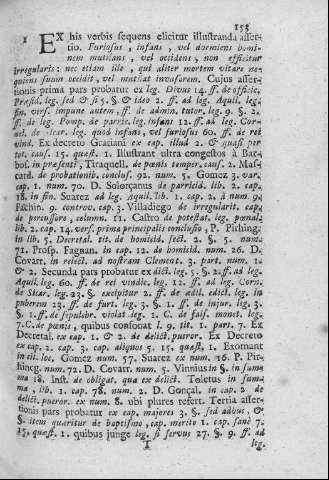 153
1 EX his verbis sequens elicitur illustranda asser-
tio. Furiosus, infans, vel dormiens homi-
nem mutilans, vel occidens, non efficitur
irregularis: nec etiam ille, qui aliter mortem vitare ne-
quiens suum occidit, vel mutilat invasorem. Cujus asser-
tionis prima pars probatur ex leg. Divus 14. ff. de offic.
Præsid. leg. sed & si 5. §. & ideo 2. ff. ad leg. Aquil. leg.
fin. vers. impune autem, ff. de admin. tutor. leg. 9. §. 2.
ff. de leg. Pomp. de parric. leg. infans 12. ff. ad leg. Cor-
nel. de sicar. leg. quod infans, vel furiosus 60. ff. de rei
vind. Ex decreto Gratiani ex cap. illud 2. & quasi per
tot. caus. 15. quæst. 1. Illustrant ultra congestos à Bar-
bos. in præsenti, Tiraquell. de pœnis temper. caus. 2. Mas-
card. de probationib. conclus. 92. num. 5. Gomez 3. var.
cap. 1. num. 70. D. Solorçanus de parricid. lib. 2. cap.
18. in fin. Suarez ad leg. Aquil. lib. 1. cap. 2. à num. 9.
Fachin. 9. controv. cap. 3. Villadiego de irregularit. cap.
de percussore, column. 11. Castro de potestat. leg. pœnal.
lib. 2. cap. 14. vers. prima principalis conclusio, P. Pirhing.
in lib. 5. Decretal. tit. de homicid. sect. 2. §. 5. num.
71. Prosp. Fagnan. in cap. 12. de homicid. num. 26. D.
Covarr. in relect. ad nostram Clement. 3. part. num. 1.
& 2. Secunda pars probatur ex dict. leg. 5. §. 2. ff. ad leg.
Aquil. leg. 60. ff. de rei vindic. leg. 12. ff. ad leg. Corn.
de Sicar. leg. 23. §. excipitur 2. ff. de ædil. edict. leg. in
puberem 23. ff. de furt. leg. 3. §. 1. ff. de injur. leg. 3.
§. 1. ff. de sepulchr. violat. leg. 1. C. de fals. monet. leg.
7. C. de pœnis, quibus consonat l. 9. tit. 1. part. 7. Ex
Decretal. ex cap. 1. & 2. de delict. pueror. Ex Decreto
ex cap. 2. cap. 3. cap. aliquos 5. 15. quæst. 1. Exornant
in cit. loc. Gomez num. 57. Suarez num. 16. P. Pir-
hing. num. 72. D. Covarr. num. 5. Vinnius in §. in summa
18. Inst. de obligat. qua ex delict. Toletus in summa
, lib. 1. cap. 78. num. 2. D. Gonçal. in cap. 2. de
delict. pueror. ex num. 8. ubi plures refert. Tertia asser-
tionis pars probatur ex cap. majores 3. §. sed adhuc, &
§. item quæritur de baptismo, cap. merito 1. cap. sanè 7.
15. quæst. 1. quibus junge leg. si servus 27. §. 9. ff. ad
T leg.